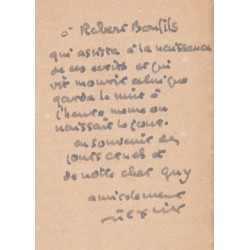 à Robert Bonfils
qui assista à la naissance
de ces écrits et qui
vit mourir celui que
garda le mur à
l'heure même où
naissait le jour.
en souvenir des
jours cruels et
de notre cher Guy
amicalement